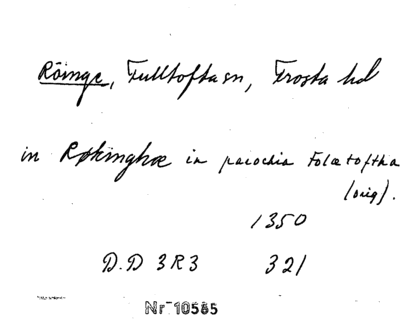 Röinge, Fulltofta sn, Frosta hd
in Røkinghæ in parochia Folætoftha
(orig).
1350
D.D 3R3 321
Nr 10585